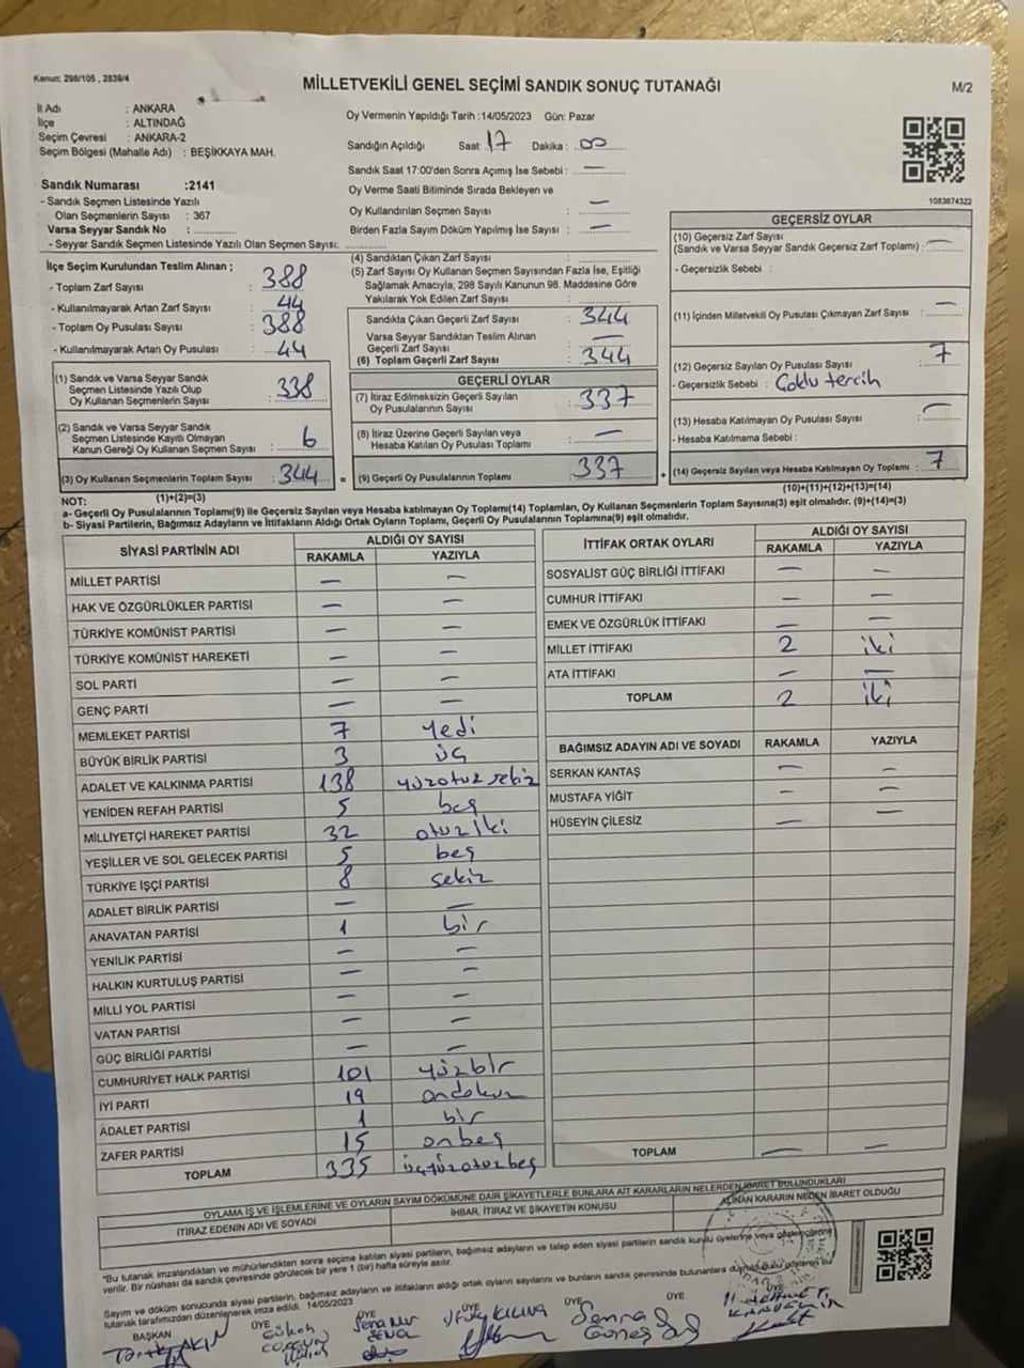 Kanun: 298/105 , 2839/4
MİLLETVEKİLİ GENEL SEÇİMİ SANDIK SONUÇ TUTANAĞI
M/2
İl Adı : ANKARA
İlçe : ALTINDAĞ
Seçim Çevresi : ANKARA-2
Seçim Bölgesi (Mahalle Adı) : BEŞİKKAYA MAH.
Sandık Numarası :2141
- Sandık Seçmen Listesinde Yazılı
Olan Seçmenlerin Sayısı : 367
Varsa Seyyar Sandık No :
- Seyyar Sandık Seçmen Listesinde Yazılı Olan Seçmen Sayısı:
Oy Vermenin Yapıldığı Tarih :14/05/2023 Gün: Pazar
Sandığın Açıldığı Saat: 17 Dakika : 00
Sandık Saat 17:00'den Sonra Açımış İse Sebebi : —
Oy Verme Saati Bitiminde Sırada Bekleyen ve
Oy Kullandırılan Seçmen Sayısı : —
Birden Fazla Sayım Döküm Yapılmış İse Sayısı : —
1083874322
İlçe Seçim Kurulundan Teslim Alınan ;
- Toplam Zarf Sayısı : 388
- Kullanılmayarak Artan Zarf Sayısı : 44
- Toplam Oy Pusulası Sayısı : 388
- Kullanılmayarak Artan Oy Pusulası : 44
(1) Sandık ve Varsa Seyyar Sandık
Seçmen Listesinde Yazılı Olup
Oy Kullanan Seçmenlerin Sayısı : 338
(2) Sandık ve Varsa Seyyar Sandık
Seçmen Listesinde Kayıtlı Olmayan
Kanun Gereği Oy Kullanan Seçmen Sayısı : 6
(3) Oy Kullanan Seçmenlerin Toplam Sayısı : 344
(4) Sandıktan Çıkan Zarf Sayısı :
(5) Zarf Sayısı Oy Kullanan Seçmen Sayısından Fazla İse, Eşitliği
Sağlamak Amacıyla, 298 Sayılı Kanunun 98. Maddesine Göre
Yakılarak Yok Edilen Zarf Sayısı :
Sandıkta Çıkan Geçerli Zarf Sayısı : 344
Varsa Seyyar Sandıktan Teslim Alınan
Geçerli Zarf Sayısı : —
(6) Toplam Geçerli Zarf Sayısı : 344
GEÇERLİ OYLAR
(7) İtiraz Edilmeksizin Geçerli Sayılan
Oy Pusulalarının Sayısı : 337
(8) İtiraz Üzerine Geçerli Sayılan veya
Hesaba Katılan Oy Pusulası Toplamı : —
= (9) Geçerli Oy Pusulalarının Toplamı : 337
GEÇERSİZ OYLAR
(10) Geçersiz Zarf Sayısı
(Sandık ve Varsa Seyyar Sandık Geçersiz Zarf Toplamı) : —
- Geçersizlik Sebebi :
(11) İçinden Milletvekili Oy Pusulası Çıkmayan Zarf Sayısı : —
(12) Geçersiz Sayılan Oy Pusulası Sayısı : 7
- Geçersizlik Sebebi : Çoklu tercih
(13) Hesaba Katılmayan Oy Pusulası Sayısı : —
- Hesaba Katılmama Sebebi :
+ (14) Geçersiz Sayılan veya Hesaba Katılmayan Oy Toplamı : 7
NOT: (1)+(2)=(3)
(10)+(11)+(12)+(13)=(14)
a- Geçerli Oy Pusulalarının Toplamı(9) ile Geçersiz Sayılan veya Hesaba katılmayan Oy Toplamı(14) Toplamları, Oy Kullanan Seçmenlerin Toplam Sayısına(3) eşit olmalıdır. (9)+(14)=(3)
b- Siyasi Partilerin, Bağımsız Adayların ve İttifakların Aldığı Ortak Oyların Toplamı, Geçerli Oy Pusulalarının Toplamına(9) eşit olmalıdır.
SİYASİ PARTİNİN ADI ALDIĞI OY SAYISI
RAKAMLA YAZIYLA
MİLLET PARTİSİ — —
HAK VE ÖZGÜRLÜKLER PARTİSİ — —
TÜRKİYE KOMÜNİST PARTİSİ — —
TÜRKİYE KOMÜNİST HAREKETİ — —
SOL PARTİ — —
GENÇ PARTİ — —
MEMLEKET PARTİSİ 7 yedi
BÜYÜK BİRLİK PARTİSİ 3 üç
ADALET VE KALKINMA PARTİSİ 138 yüzotuz sekiz
YENİDEN REFAH PARTİSİ 5 beş
MİLLİYETÇİ HAREKET PARTİSİ 32 otuz iki
YEŞİLLER VE SOL GELECEK PARTİSİ 5 beş
TÜRKİYE İŞÇİ PARTİSİ 8 sekiz
ADALET BİRLİK PARTİSİ — —
ANAVATAN PARTİSİ 1 bir
YENİLİK PARTİSİ — —
HALKIN KURTULUŞ PARTİSİ — —
MİLLİ YOL PARTİSİ — —
VATAN PARTİSİ — —
GÜÇ BİRLİĞİ PARTİSİ — —
CUMHURİYET HALK PARTİSİ 101 yüzbir
İYİ PARTİ 19 ondokuz
ADALET PARTİSİ 1 bir
ZAFER PARTİSİ 15 onbeş
TOPLAM 335 üçyüzotuzbeş
İTTİFAK ORTAK OYLARI ALDIĞI OY SAYISI
RAKAMLA YAZIYLA
SOSYALİST GÜÇ BİRLİĞİ İTTİFAKI — —
CUMHUR İTTİFAKI — —
EMEK VE ÖZGÜRLÜK İTTİFAKI — —
MİLLET İTTİFAKI 2 iki
ATA İTTİFAKI — —
TOPLAM 2 iki
BAĞIMSIZ ADAYIN ADI VE SOYADI RAKAMLA YAZIYLA
SERKAN KANTAŞ — —
MUSTAFA YİĞİT — —
HÜSEYİN ÇİLESİZ — —
TOPLAM — —
OYLAMA İŞ VE İŞLEMLERİNE VE OYLARIN SAYIM DÖKÜMÜNE DAİR ŞİKAYETLERLE BUNLARA AİT KARARLARIN NELERDEN İBARET BULUNDUKLARI
İTİRAZ EDENİN ADI VE SOYADI
İHBAR, İTİRAZ VE ŞİKAYETİN KONUSU
ALINAN KARARIN NEDEN İBARET OLDUĞU
"Bu tutanak imzalandıktan ve mühürlendikten sonra seçime katılan siyasi partilerin, bağımsız adayların ve talep eden siyasi partilerin sandık kurulu üyelerine veya
verilir. Bir nüshası da sandık çevresinde görülecek bir yere 1 (bir) hafta süreyle asılır.
Sayım ve döküm sonucunda siyasi partilerin, bağımsız adayların ve ittifakların aldığı ortak oyların sayısını ve bunların sandık çevresinde bulunanlara
tutanak tarafımızdan düzenlenerek imza edildi. 14/05/2023
BAŞKAN ÜYE ÜYE ÜYE ÜYE ÜYE